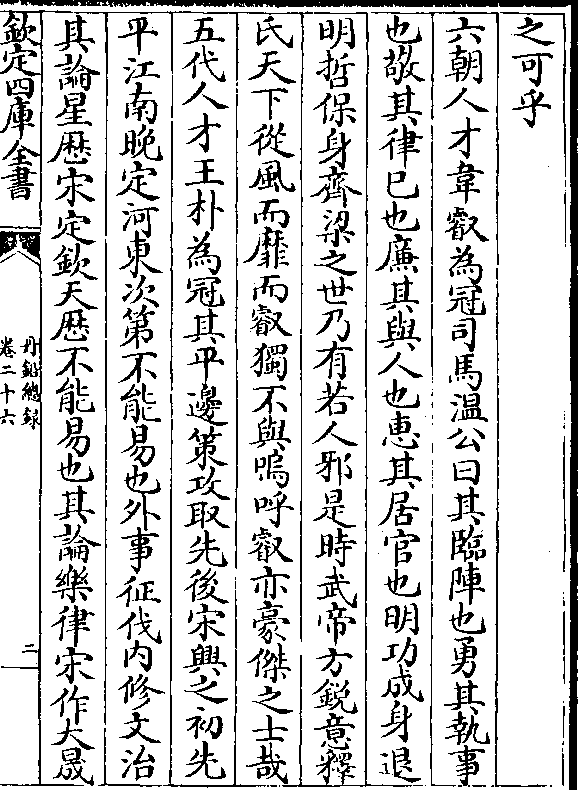 之可乎
六朝人才韋叡為冠司馬温公曰其臨陣也勇其執事
也敬其律已也廉其與人也恵其居官也明功成身退
明哲保身齊梁之世乃有若人邪是時武帝方鋭意釋
氏天下從風而靡而叡獨不與嗚呼叡亦豪傑之士哉
五代人才王朴為冠其平邊策攻取先後宋興之初先
平江南晚定河東次第不能易也外事征伐内修文治
其論星歴宋定欽天歴不能易也其論樂律宋作大晟
欽定四庫全書
丹鉛總録
卷二十六
二